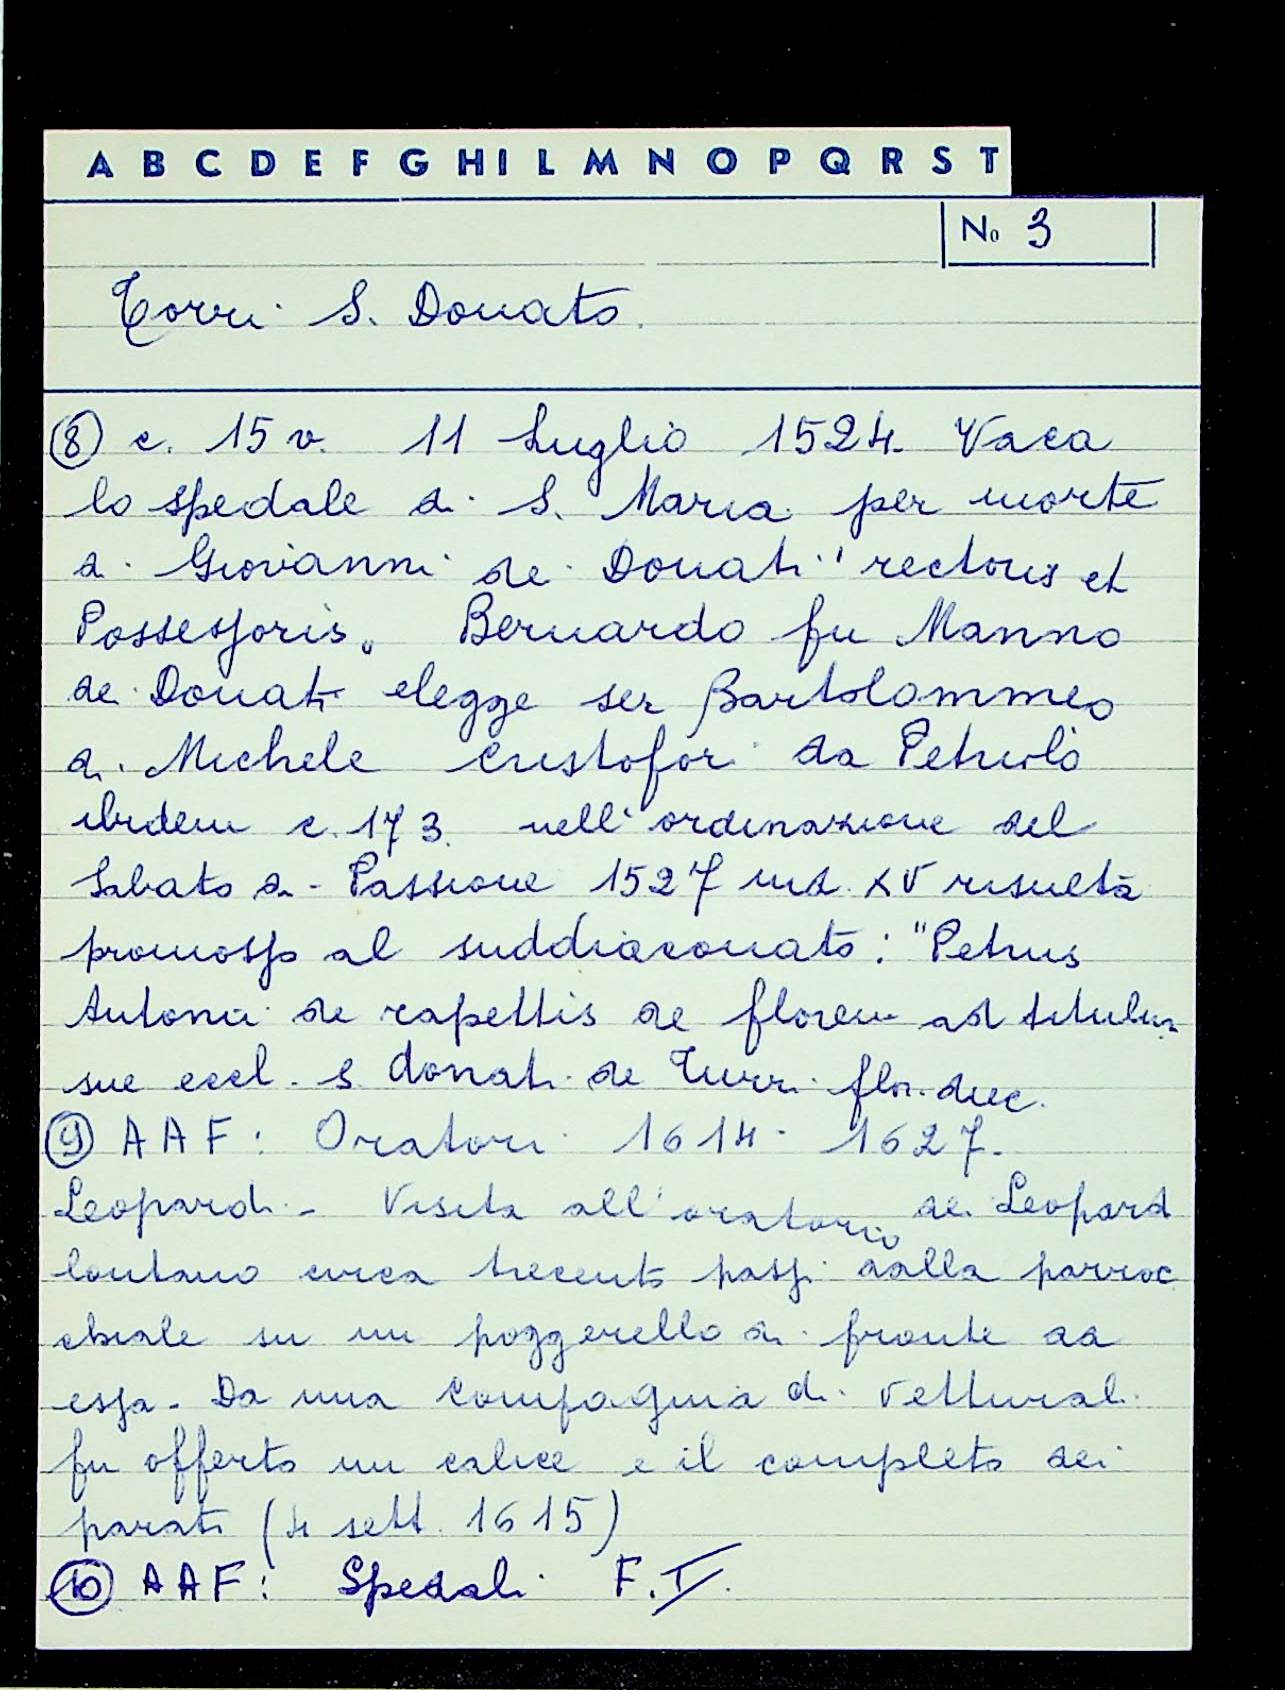 A B C D E F G H I L M N O P Q R S T
No 3
Torri S. Donato.
(8) c. 15 v. 11 Luglio 1524. Vaca
lo spedale di S. Maria per morte
di Giovanni de Donati "rectoris et
Possessoris. Bernardo fu Manno
dei Donati elegge ser Bartolommeo
di Michele Cristofori da Petriolo
ibidem c. 173. nell'ordinazione del
Sabato di Passione 1527 ind. XV risulta
promosso al suddiaconato: "Petrus
Antonii de rapettis de floren ad titulum
sue eccl. s. donati de Turri flor. duc.
(9) AAF: Oratori 1614-1627.
Leopardi - Visita all'oratorio dei Leopard
lontano circa trecento passi dalla parroc
chiale su un poggerello di fronte ad
essa. Da una Compagnia di vetturali
fu offerto un calice e il completo dei
parati (4 sett. 1615)
(10) AAF: Spedali F. I.